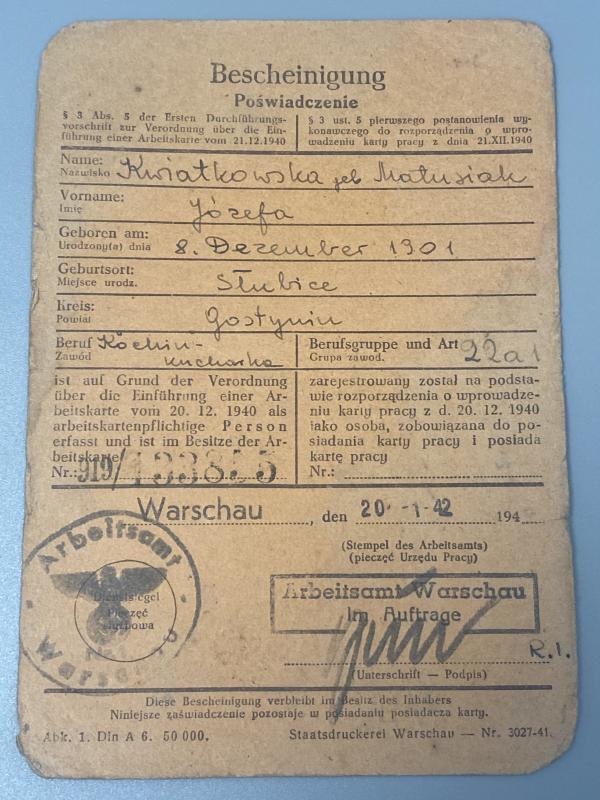 Bescheinigung
Poświadczenie
§ 3 Abs. 5 der Ersten Durchführungs-
vorschrift zur Verordnung über die Ein-
führung einer Arbeitskarte vom 21.12.1940
§ 3 ust. 5 pierwszego postanowienia wy-
konawczego do rozporządzenia o wpro-
wadzeniu karty pracy z dnia 21.XII.1940
Name: Kwiatkowska geb Matusiak
Nazwisko
Vorname: Józefa
Imię
Geboren am: 8. Dezember 1901
Urodzony(a) dnia
Geburtsort: Słubice
Miejsce urodz.
Kreis: Gostynin
Powiat
Beruf Köchin-
Zawód kucharka
Berufsgruppe und Art 22a1
Grupa zawod.
ist auf Grund der Verordnung
über die Einführung einer Ar-
beitskarte vom 20. 12. 1940 als
arbeitskartenpflichtige Person
erfasst und ist im Besitze der Ar-
beitskarte
Nr.: 919/133855
zarejestrowany został na podsta-
wie rozporządzenia o wprowadze-
niu karty pracy z d. 20. 12. 1940
jako osoba, zobowiązana do po-
siadania karty pracy i posiada
kartę pracy
Nr.:
Warschau, den 20. -1.-42 194
(Stempel des Arbeitsamts)
(pieczęć Urzędu Pracy)
Arbeitsamt
Dienstsiegel
Pieczęć
służbowa
Warschau
Arbeitsamt Warschau
Im Auftrage
R.I.
(Unterschrift — Podpis)
Diese Bescheinigung verbleibt im Besitz des Inhabers
Niniejsze zaświadczenie pozostaje w posiadaniu posiadacza karty.
Abk. 1. Din A 6. 50 000. Staatsdruckerei Warschau — Nr. 3027-41.